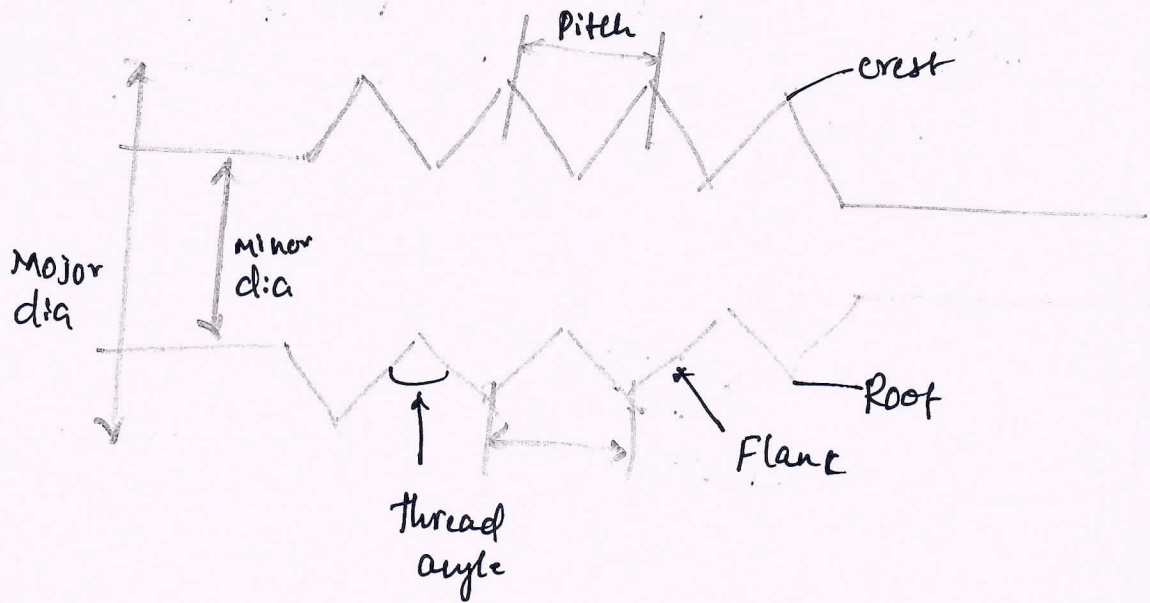 Pitch
crest
Mojor
dia
Minor
dia
Root
Flank
thread
angle